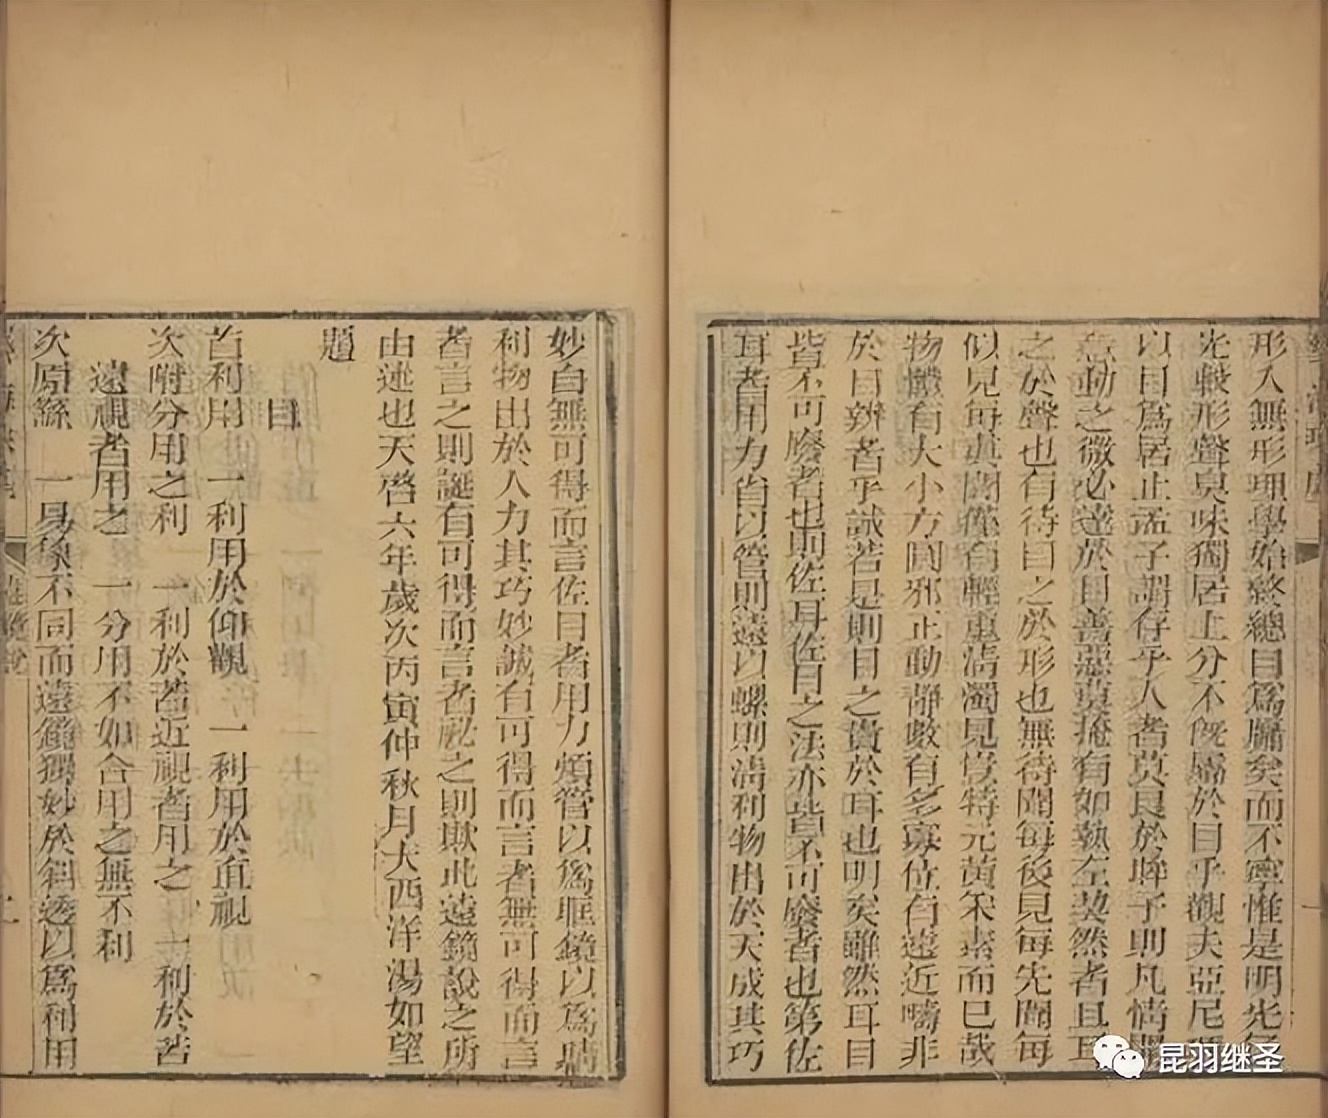 形入無形理學始終總目爲牖矣而不寧惟是明光
光較形聲臭味獨居上分不旣屬於目乎觀夫亞尼
以目爲居止孟子謂存乎人者莫良於眸子則凡情
意動之微必達於目善惡莫掩有如執左契然者且耳
之於聲也有待目之於形也無待聞每後見每先聞每
似見每眞聞僅有輕重淸濁見豈特元黃朱素而已哉
物體有大小方圓邪正動靜數有多寡位有遠近疇非
於目辨者乎誠若是則目之貴於耳也明矣雖然耳目
皆不可廢者也則佐耳佐目之法亦皆不可廢者也第佐
耳者用力省以管則遠以螺則淸利物出於天成其巧
妙自無可得而言佐目者用力煩管以爲眶鏡以爲睛
利物出於人力其巧妙誠有可得而言者無可得而言
者言之則誕有可得而言者祕之則欺此遠鏡說之所
由述也天啓六年歲次丙寅仲秋月大西洋湯如望
題
目
首利用 一利用於仰觀 一利用於直視
次附分用之利 一利於苦近視者用之 一利於苦
遠視者用之 一分用不如合用之無不利
次原繇 一易象不同而遠鏡獨妙於斜透以爲利用
遠鏡說
昆羽继圣